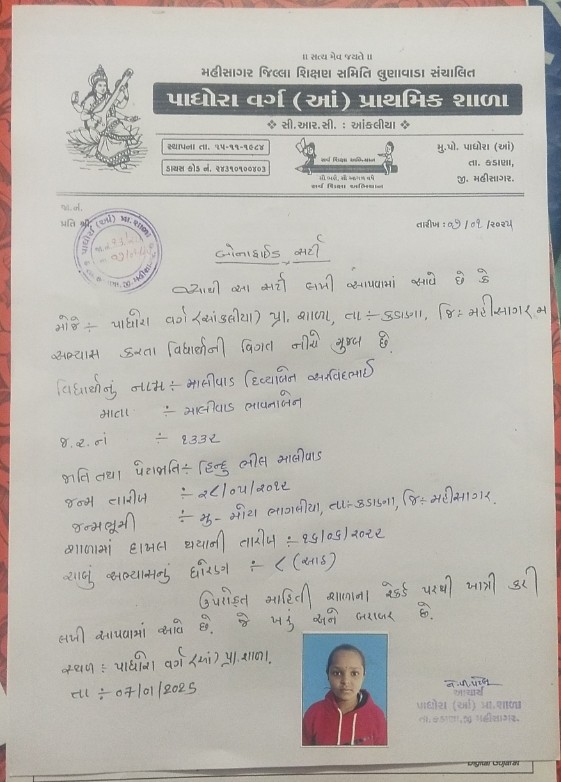 ॥ સત્ય મેવ જયતે ॥
મહીસાગર જિલ્લા શિક્ષણ સમિતિ લુણાવાડા સંચાલિત
પાધોરા વર્ગ (આં) પ્રાથમિક શાળા
❖ સી.આર.સી. : આંકલીયા ❖
સ્થાપના તા. ૧૫-૧૧-૧૯૮૪
ડાયસ કોડ નં. ૨૪૩૧૦૧૦૦૪૦૩
સર્વ શિક્ષા અભિયાન
સૌ ભણે, સૌ આગળ વધે
સર્વ શિક્ષા અભિયાન
મુ.પો. પાધોરા (આં)
તા. કડાણા,
જી. મહીસાગર.
જા.નં.
પ્રતિ શ્રી
પાધોરા (આં) પ્રા.શાળા
તારીખ : ૦૭/૦૧/૨૦૨૫
બોનાફાઈડ સર્ટી
આથી આ સર્ટી લખી આપવામાં આવે છે કે
મોજે ÷ પાધોરા વર્ગ (આંકલીયા) પ્રા. શાળા, તા ÷ કડાણા, જિ ÷ મહીસાગર માં
અભ્યાસ કરતા વિદ્યાર્થીની વિગત નીચે મુજબ છે.
વિદ્યાર્થીનું નામ ÷ માલીવાડ દિવ્યાબેન અરવિંદભાઈ
માતા ÷ માલીવાડ ભાવનાબેન
જ.ર.નં ÷ ૧૩૩૨
જાતિ તથા પેટાજાતિ ÷ હિન્દુ ભીલ માલીવાડ
જન્મ તારીખ ÷ ૨૮/૦૫/૨૦૧૨
જન્મભૂમી ÷ મુ - મોટા ભાગલીયા, તા ÷ કડાણા, જિ ÷ મહીસાગર.
શાળામાં દાખલ થયાની તારીખ ÷ ૧૬/૦૬/૨૦૨૨
ચાલું અભ્યાસનું ધોરણ ÷ ૮ (આઠ)
ઉપરોક્ત માહિતી શાળાના રેકર્ડ પરથી ખાત્રી કરી
લખી આપવામાં આવે છે. જે ખરું અને બરાબર છે.
સ્થળ ÷ પાધોરા વર્ગ (આં) પ્રા. શાળા.
તા ÷ ૦૭/૦૧/૨૦૨૫
આચાર્ય
પાધોરા (આં) પ્રા.શાળા
તા.કડાણા,જી મહીસાગર.
Digital Gujarat